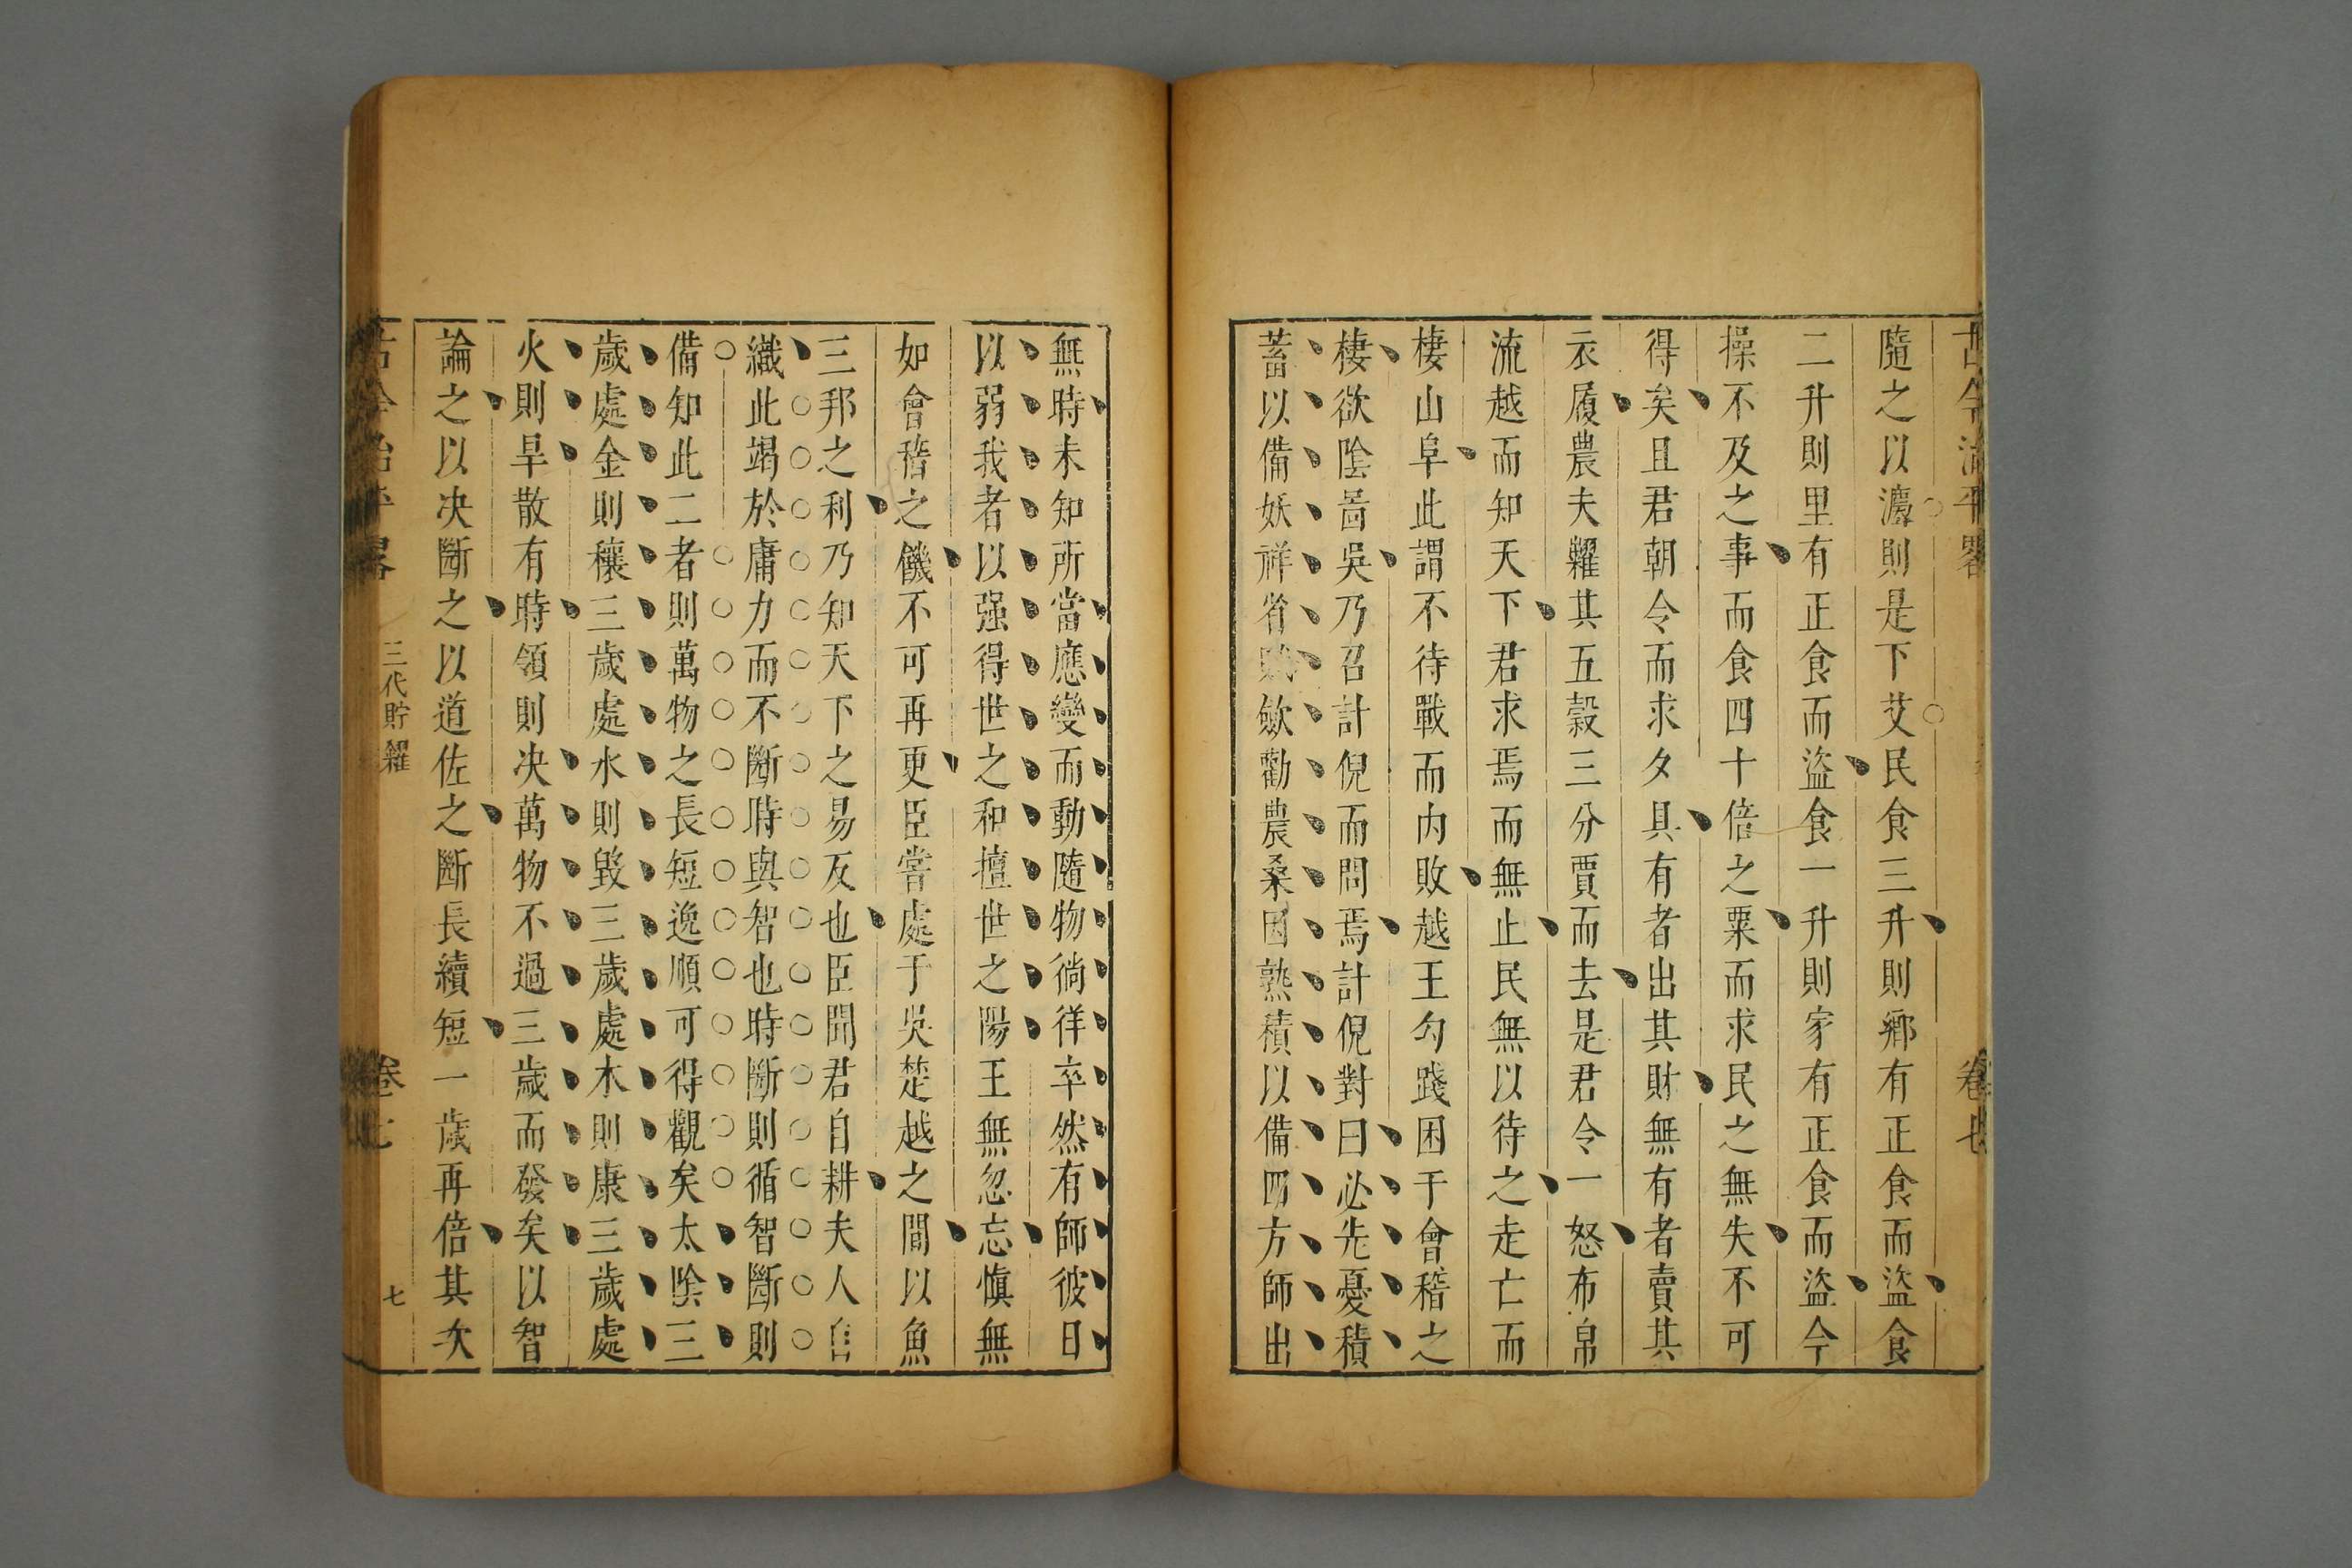 古今治平畧
卷七
隨之以灋則是下艾民食三升則鄉有正食而盜食
二升則里有正食而盜食一升則家有正食而盜今
操不及之事而食四十倍之粟而求民之無失不可
得矣且君朝令而求夕具有者出其財無有者賣其
衣履農夫糶其五榖三分賈而去是君令一怒布帛
流越而知天下君求焉而無止民無以待之走亡而
棲山阜此謂不待戰而内敗越王勾踐困于會稽之
棲欲陰啚吳乃召計倪而問焉計倪對曰必先憂積
蓄以備妖祥省歛勸農桑因熟積以備四方師出
無時未知所當應變而動隨物徜徉卒然有師彼日
以弱我者以强得世之和擅世之陽王無忽忘慎無
如會稽之饑不可再更臣嘗處于吳楚越之間以魚
三邦之利乃知天下之易反也臣聞君自耕夫人
織此竭於庸力而不斷時與智也時斷則循智斷則
備知此二者則萬物之長短逆順可得觀矣太陰三
歲處金則穰三歲處水則毀三歲處木則康三歲處
火則旱散有時領則决萬物不過三歲而發矣以智
論之以决斷之以道佐之斷長續短一歲再倍其次
古今治平畧
三代貯糴
卷七
七